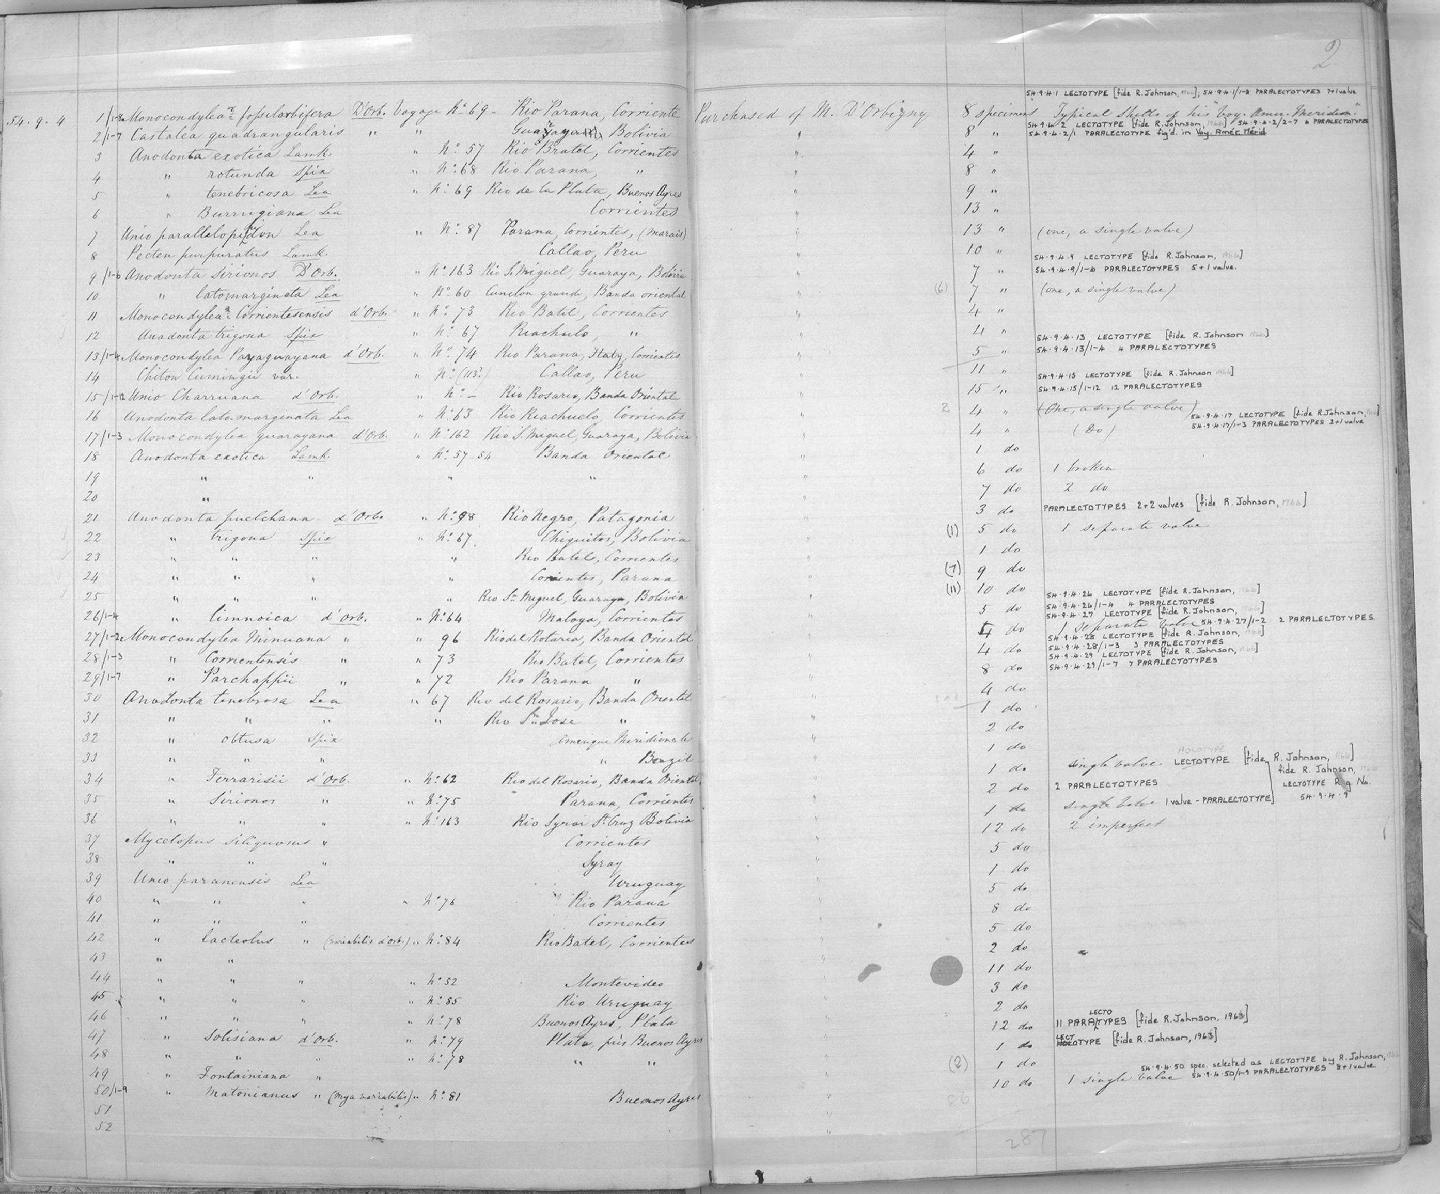 2
54.9.4 1/1-8 Monocondylea fossiculifera D'Orb. Voyage No 69 - Rio Parana, Corriente Purchased of M. D'Orbigny 8 specimens Typical Shells of his "Voy. Amér. Méridion."
54.9.4.1 LECTOTYPE [fide R. Johnson, ], 54.9.4.1/1-8 PARALECTOTYPES 7+1 valve
2/1-7 Castalea quadrangularis " " Guarayas, Bolivia " 8 "
54.9.4.2 LECTOTYPE [fide R. Johnson, ] 54.9.4.2/2-7 6 PARALECTOTYPES
54.9.4.2/1 PARALECTOTYPE fig'd. in Voy. Amér. Mérid.
3 Anodonta exotica Lamk. " No 57 Rio Batel, Corrientes " 4 "
4 " rotunda Spix " No 68 Rio Parana, " " 8 "
5 " tenebricosa Lea " No 69 Rio de la Plata, Buenos Ayres " 9 "
6 " Burrigiana Lea Corrientes " 13 "
7 Unio parallelopipedon Lea " No 87 Parana, Corrientes, (Marais) " 13 " (one, a single valve)
8 Pecten purpuratus Lamk. Callao, Peru " 10 "
9/1-6 Anodonta Sirionos D'Orb. " No 163 Rio S. Miguel, Guaraya, Bolivia " 7 "
54.9.4.9 LECTOTYPE [fide R. Johnson, ]
54.9.4.9/1-6 PARALECTOTYPES 5+1 valve.
10 " latomarginata Lea " No 60 Cunelon grand, Banda oriental " (6) 7 " (one, a single valve)
11 Monocondylea Corrientesensis d'Orb. " No 73 Rio Batel, Corrientes " 4 "
12 Anodonta trigona Spix " No 67 Riachuelo, " " 4 "
13/1-4 Monocondylea Paraguayana d'Orb. " No 74 Rio Parana, Itaty, Corrientes " 5 "
54.9.4.13 LECTOTYPE [fide R. Johnson ]
54.9.4.13/1-4 4 PARALECTOTYPES
14 Chiton Cumingii var. " Callao, Peru " 11 "
15/1-12 Unio Charruana d'Orb. " No - Rio Rosario, Banda Oriental " 15 "
54.9.4.15 LECTOTYPE [fide R. Johnson ]
54.9.4.15/1-12 12 PARALECTOTYPES
16 Anodonta latomarginata Lea " No 63 Rio Riachuelo, Corrientes " 2 4 " (One, a single valve)
17/1-3 Monocondylea guarayana d'Orb. " No 162 Rio S. Miguel, Guaraya, Bolivia " 4 " (Do)
54.9.4.17 LECTOTYPE [fide R. Johnson, ]
54.9.4.17/1-3 PARALECTOTYPES 2+1 valve
18 Anodonta exotica Lamk. " No 57 54 Banda Oriental " 1 do
19 " " " " " 6 do 1 broken
20 " " 7 do 2 do
21 Anodonta puelchana d'Orb. " No 98 Rio Negro, Patagonia " 3 do PARALECTOTYPES 2+2 valves [fide R. Johnson, ]
22 " trigona Spix " No 67 Chiquitos, Bolivia " (1) 5 do 1 separate valve
23 " " " Rio Batels, Corrientes " 1 do
24 " " " " Corrientes, Parana " (7) 9 do
25 " " " Rio Sn Miguel, Guaraya, Bolivia " (11) 10 do
26/1-4 " limnoica d'Orb. " No 64 Maloya, Corrientes " 5 do
54.9.4.26 LECTOTYPE [fide R. Johnson, ]
54.9.4.26/1-4 4 PARALECTOTYPES
27/1-2 Monocondylea Minuana " " 96 Rio del Rotario, Banda Oriental " 4 do 1 separate valve
54.9.4.27 LECTOTYPE [fide R. Johnson, ]
54.9.4.27/1-2 2 PARALECTOTYPES
28/1-3 " Corrientensis " " 73 Rio Batel, Corrientes " 4 do
54.9.4.28 LECTOTYPE [fide R. Johnson, ]
54.9.4.28/1-3 3 PARALECTOTYPES
29/1-7 " Parchappii " " 72 Rio Parana " " 8 do
54.9.4.29 LECTOTYPE [fide R. Johnson, ]
54.9.4.29/1-7 7 PARALECTOTYPES
30 Anodonta tenebrosa Lea " 67 Rio del Rosario, Banda Oriental " 4 do
31 " " " " Rio Sn Jose " " 1 do
32 " obtusa Spix Amerique Meridionale " 2 do
33 " " " " Brazil " 1 do
34 " Ferrarisii d'Orb. " No 62 Rio del Rosario, Banda Oriental " 1 do single valve HOLOTYPE LECTOTYPE [fide R. Johnson, ]
35 " Sirionos " " No 75 Parana, Corrientes " 2 do 2 PARALECTOTYPES
fide R. Johnson,
LECTOTYPE Reg No.
54.9.4.9
36 " " " " No 163 Rio Syrar St Cruz Bolivia " 1 do single valve 1 valve - PARALECTOTYPE]
37 Mycetopus siliquosus " Corrientes " 12 do 2 imperfect
38 " " " Syray " 5 do
39 Unio paranensis Lea Uruguay " 1 do
40 " " " " No 76 Rio Parana " 5 do
41 " " " Corrientes " 8 do
42 " Lacteolus " (variabilis d'Orb.) " No 84 Rio Batel, Corrientes " 5 do
43 " " " 2 do
44 " " " " No 52 Montevideo " 11 do
45 " " " " No 85 Rio Uruguay " 3 do
46 " " " " No 78 Buenos Ayres, Plata " 2 do
47 " Solisiana d'Orb. " No 79 Plata, près Buenos Ayres " 12 do 11 PARALECTOTYPES [fide R. Johnson, 1963]
48 " " " " No 78 " " " 1 do LECTOTYPE [fide R. Johnson, 1963]
49 " Fontainiana " (2) 1 do
50/1-9 " Matonianus " (Mya variabilis) " No 81 Buenos Ayres 10 do 1 single valve
54.9.4.50 spec. selected as LECTOTYPE by R. Johnson,
54.9.4.50/1-9 PARALECTOTYPES 8+1 valve
51
52
26
287